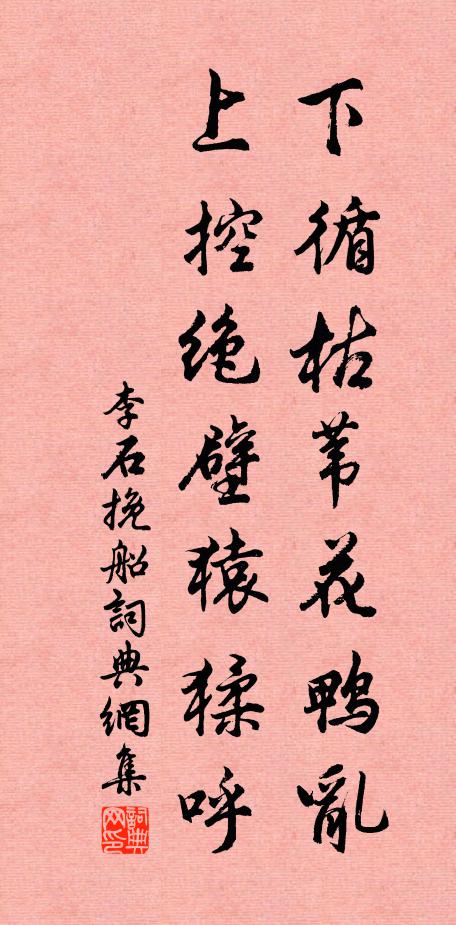 下循枯苇花鸭亂
上控绝壁猿猱呼
李石挽船詞典網集
詞典网印